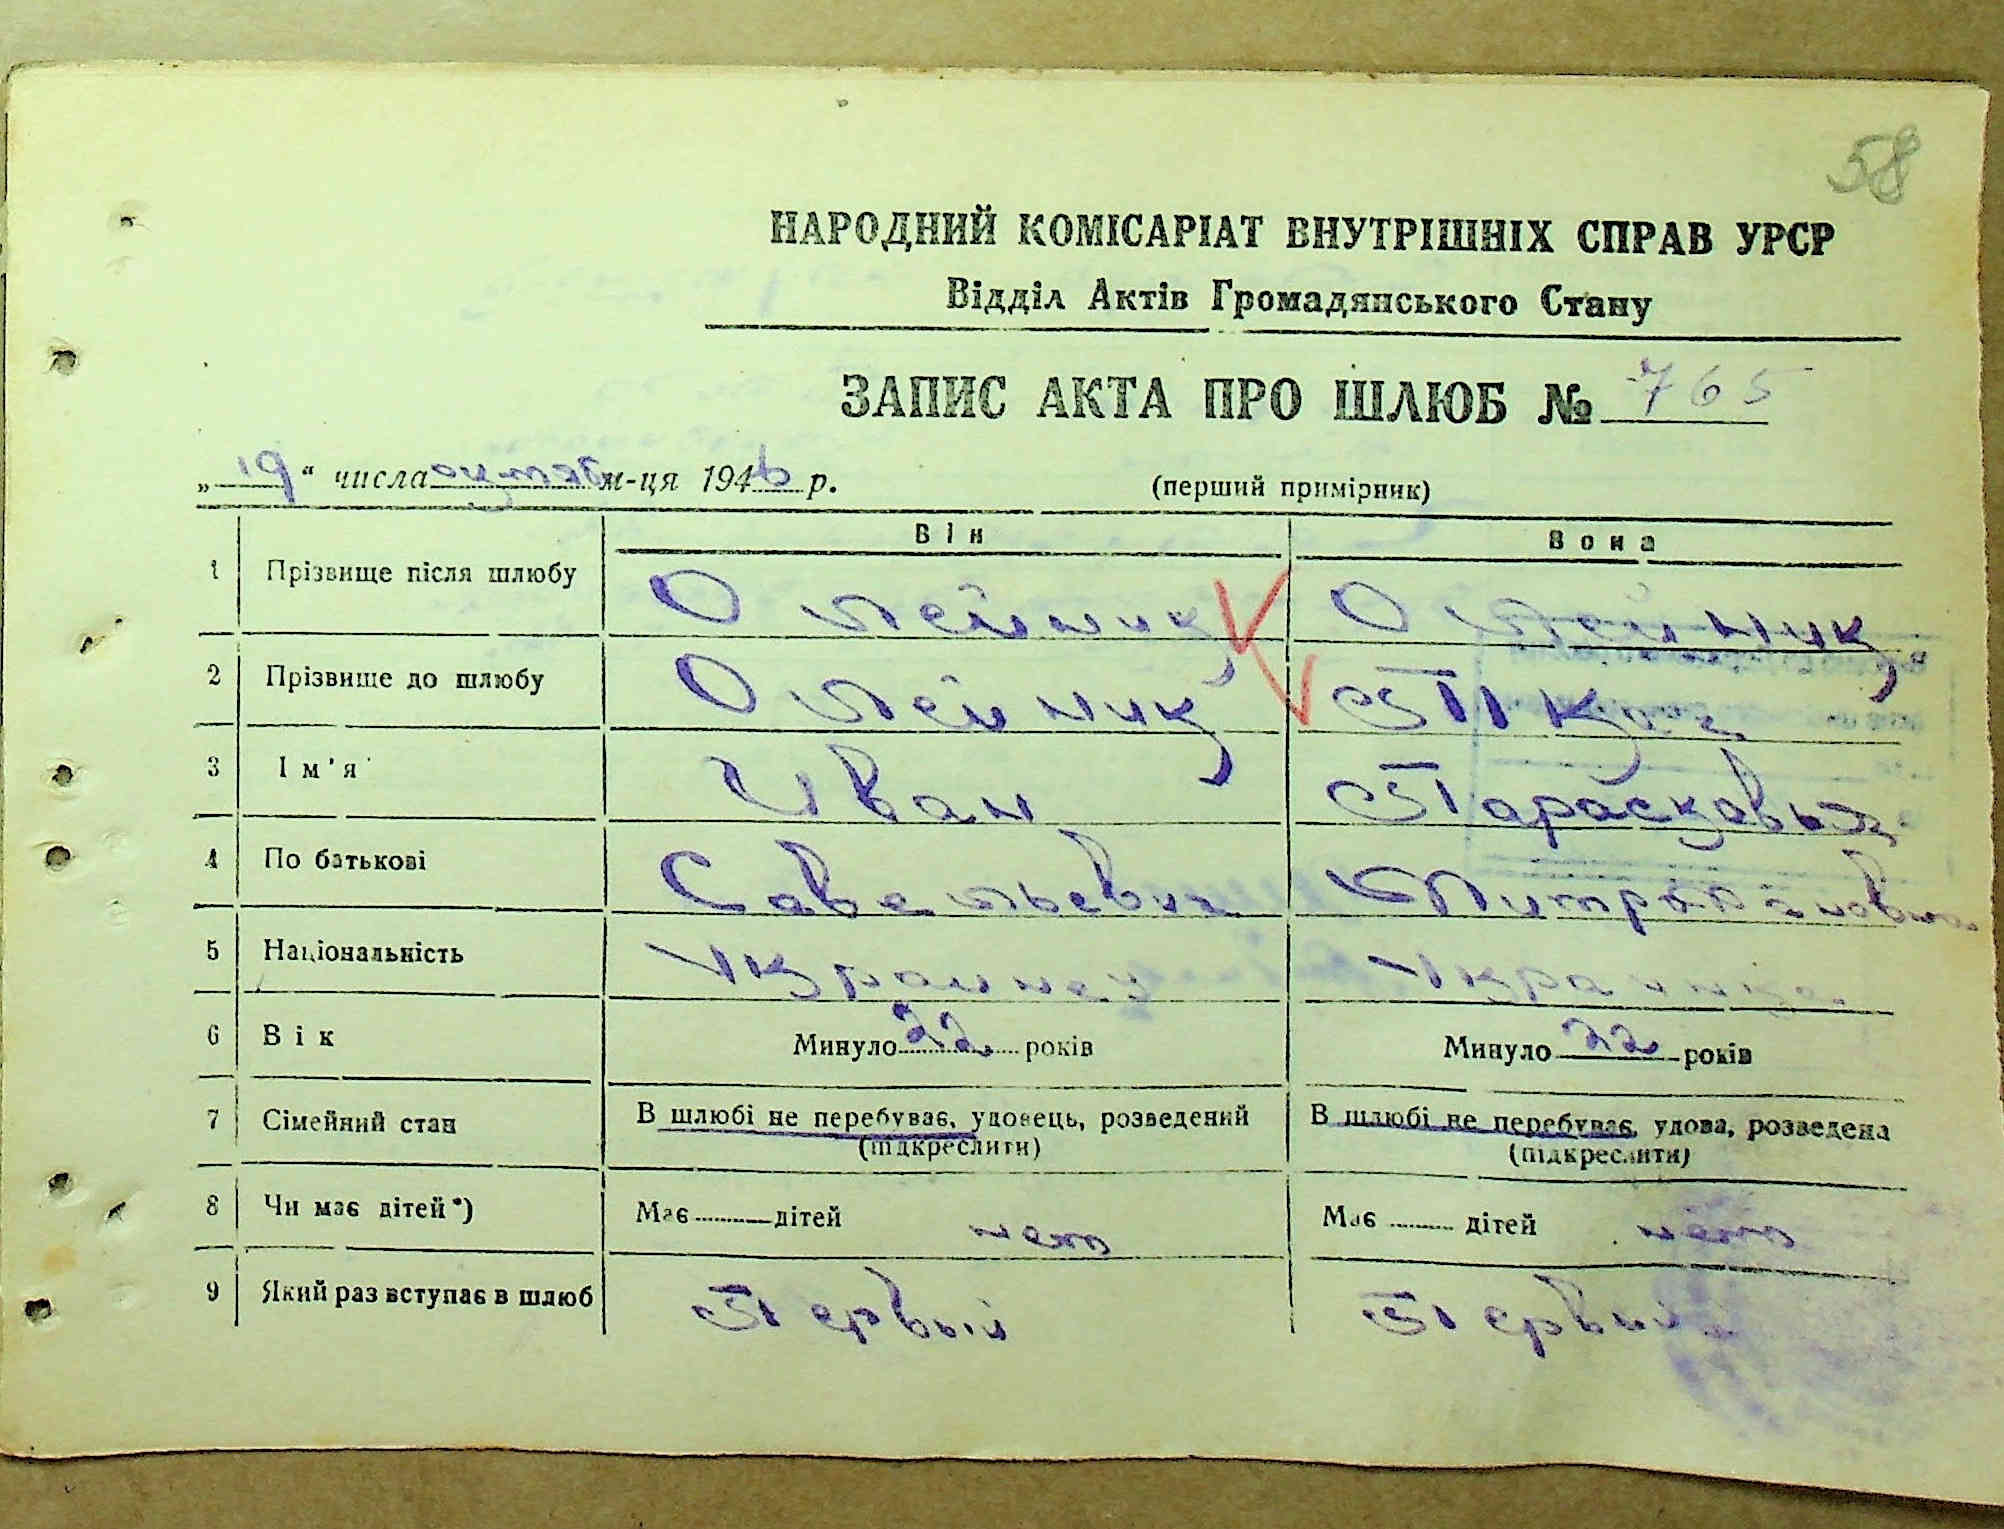 58
НАРОДНИЙ КОМІСАРІАТ ВНУТРІШНІХ СПРАВ УРСР
Відділ Актів Громадянського Стану
ЗАПИС АКТА ПРО ШЛЮБ № 765
„ 19 “ числа октяб м-ця 1946 р. (перший примірник)
Він Вона
1 Прізвище після шлюбу Олейник Олейник
2 Прізвище до шлюбу Олейник Ткач
3 Ім'я Иван Парасковья
4 По батькові Савельевич Митрофановна
5 Національність Украинец Украинка
6 Вік Минуло 22 років Минуло 22 років
7 Сімейний стан В шлюбі не перебуває, удовець, розведений В шлюбі не перебуває, удова, розведена
(підкреслити) (підкреслити)
8 Чи має дітей*) Має дітей нет Має дітей нет
9 Який раз вступає в шлюб Первый Первый